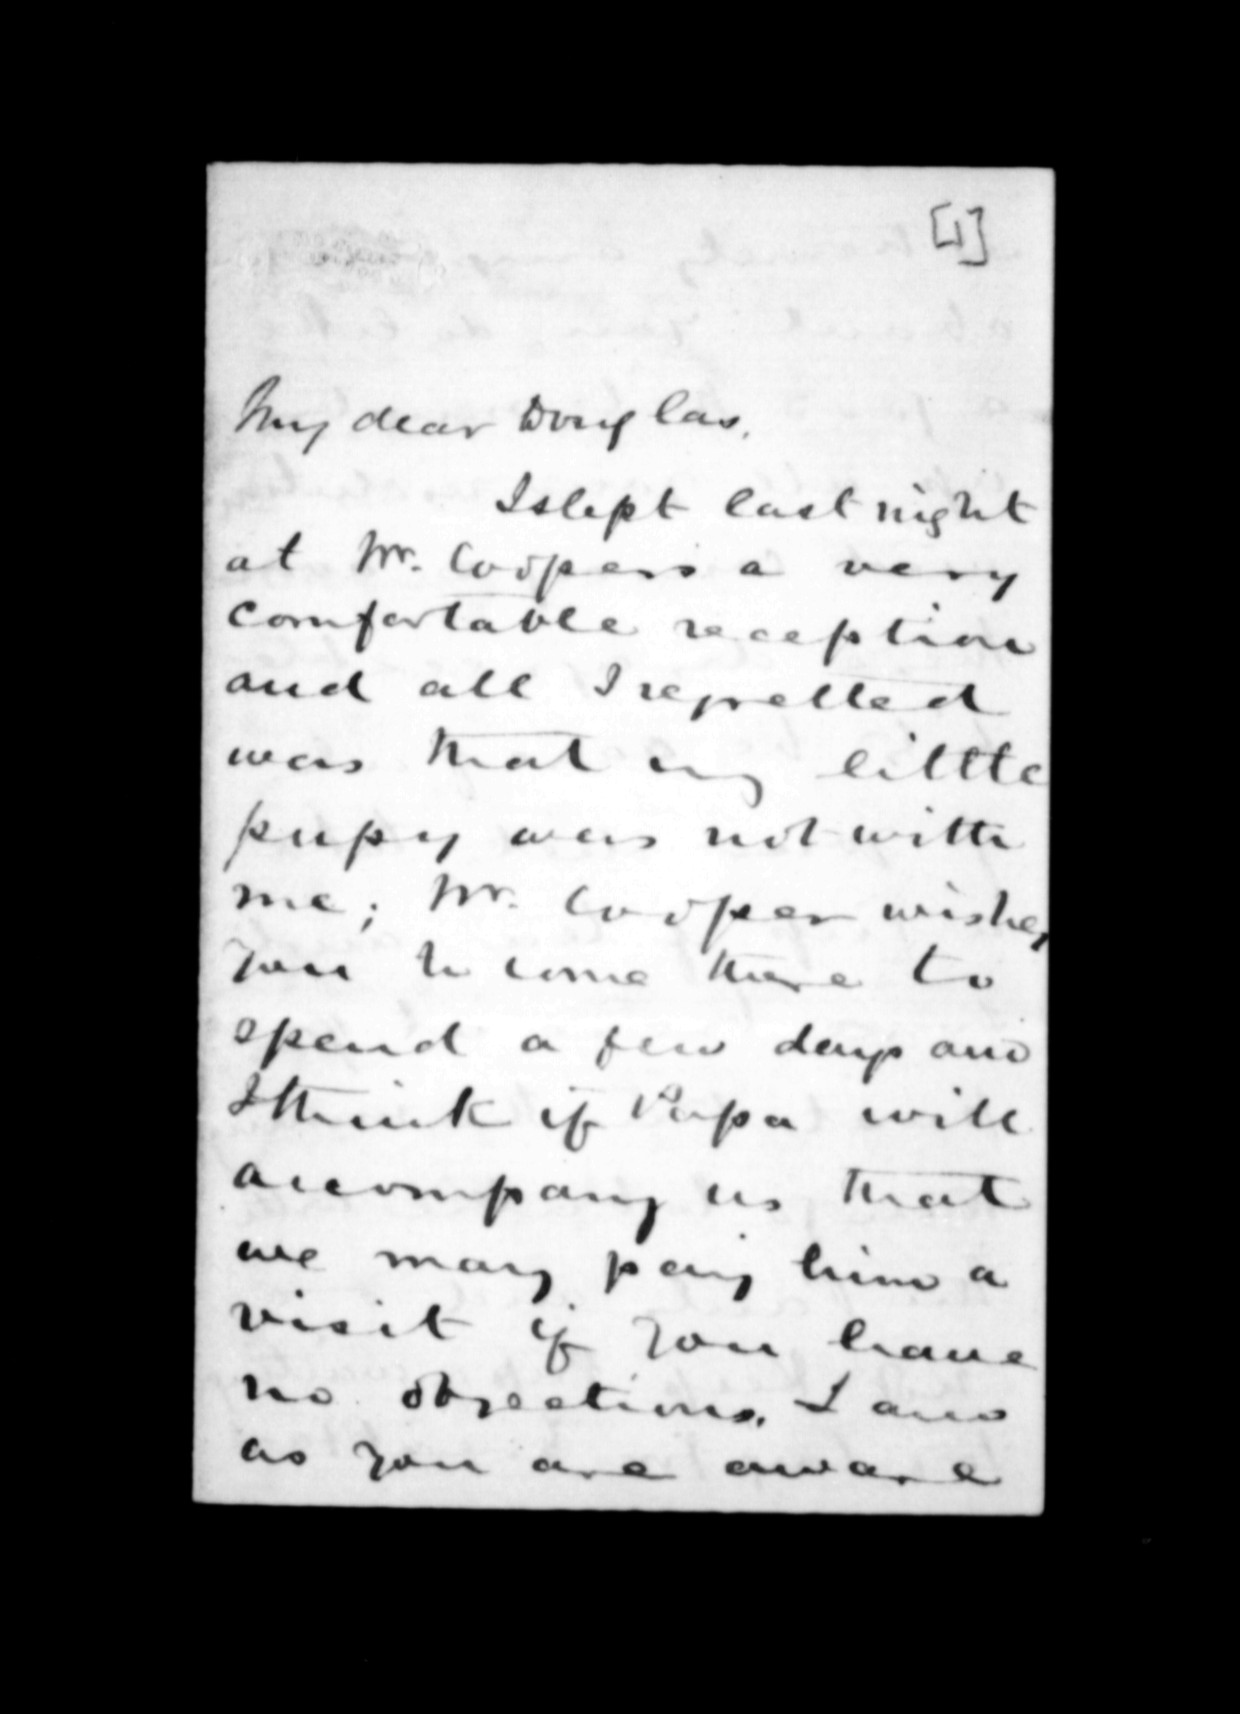 [1]
My dear Douglas.
I slept last night
at Mr. Coopers a very
comfortable reception
and all I regretted
was that my little
pupy was not with
me; Mr. Cooper wishes
you to come there to
spend a few days and
I think if Papa will
accompany us that
we may pay him a
visit if you have
no objections. I am
as you are aware